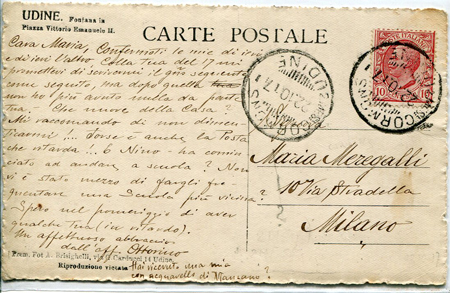 UDINE. Fontana in
Piazza Vittorio Emanuele II.
CARTE POSTALE
Cara Maria, Confermoti le mie di ieri
e di ieri l'altro. Colla tua del 17 mi
promettevi di scrivermi il giorno seguente
come seguito, ma dopo quella
non ho più avuto nulla da parte
tua. Che nuove della Casa?
Mi raccomando di non dimen-
ticarmi!... Forse è anche la Posta
che ritarda!... E Nino - ha comin-
ciato ad andare a scuola? Non
vi è stato mezzo di fargli fre-
quentare una Scuola più vicina?
Spero nel pomeriggio di aver
qualche tua (in ritardo).
Un affettuoso abbraccio
dall'aff. Ottorino
Prem. Fot. A. Brisighelli, via G. Carducci 14 Udine.
Riproduzione vietata
Hai ricevuto una mia
con acquarello di Mancano?
CORMONS
UDINE
CORMONS
POSTE ITALIANE
10
10
Maria Meregalli
10 Via Stradella
Milano
?
?